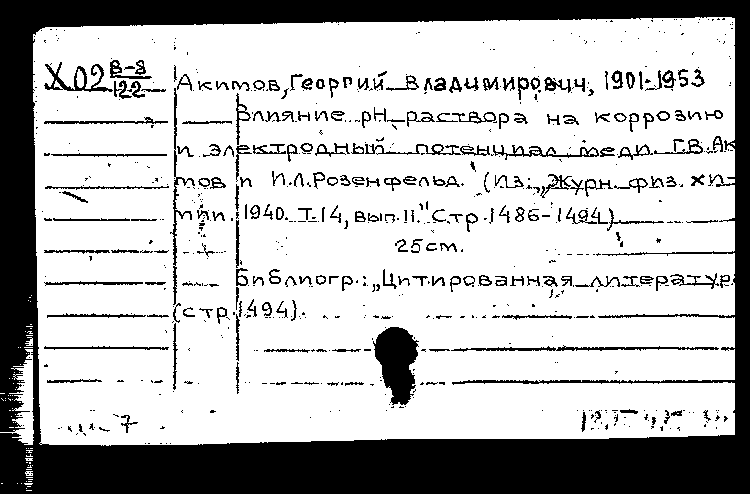 Х02 В-8/122 Акимов, Георгий Владимирович, 1901-1953
Влияние рН раствора на коррозию
и электродный потенциал меди. Г.В.Аки
мов и И.Л.Розенфельд. (Из: „Журн. физ. хи-
мии. 1940. Т.14, вып.11." Стр.1486-1494)
25см.
Библиогр.: „Цитированная литература
(стр.1494).
7